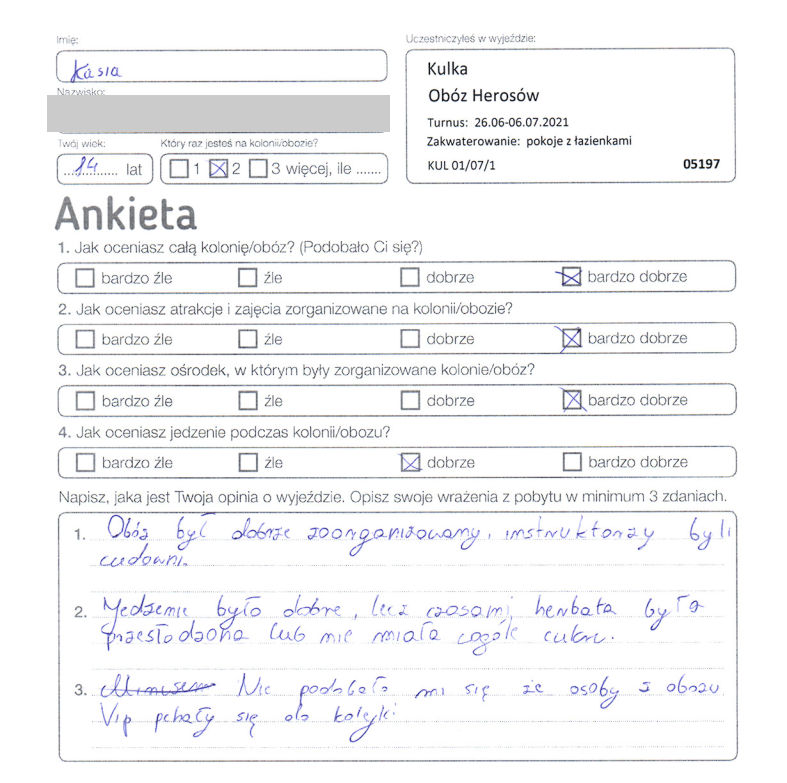 Imię:
Kasia
Nazwisko:
Twój wiek:
14 lat
Który raz jesteś na kolonii/obozie?
1 2 3 więcej, ile .......
Uczestniczyłeś w wyjeździe:
Kulka
Obóz Herosów
Turnus: 26.06-06.07.2021
Zakwaterowanie: pokoje z łazienkami
KUL 01/07/1 05197
Ankieta
1. Jak oceniasz całą kolonię/obóz? (Podobało Ci się?)
bardzo źle źle dobrze bardzo dobrze
2. Jak oceniasz atrakcje i zajęcia zorganizowane na kolonii/obozie?
bardzo źle źle dobrze bardzo dobrze
3. Jak oceniasz ośrodek, w którym były zorganizowane kolonie/obóz?
bardzo źle źle dobrze bardzo dobrze
4. Jak oceniasz jedzenie podczas kolonii/obozu?
bardzo źle źle dobrze bardzo dobrze
Napisz, jaka jest Twoja opinia o wyjeździe. Opisz swoje wrażenia z pobytu w minimum 3 zdaniach.
1. Obóz był dobrze zoorganizowany, instruktorzy byli
cudowni.
2. Jedzenie było dobre, lecz czasami herbata była
przesłodzona lub nie miała wogóle cukru.
3. Nie podobało mi się że osoby z obozu
Vip pchały się do kolejki